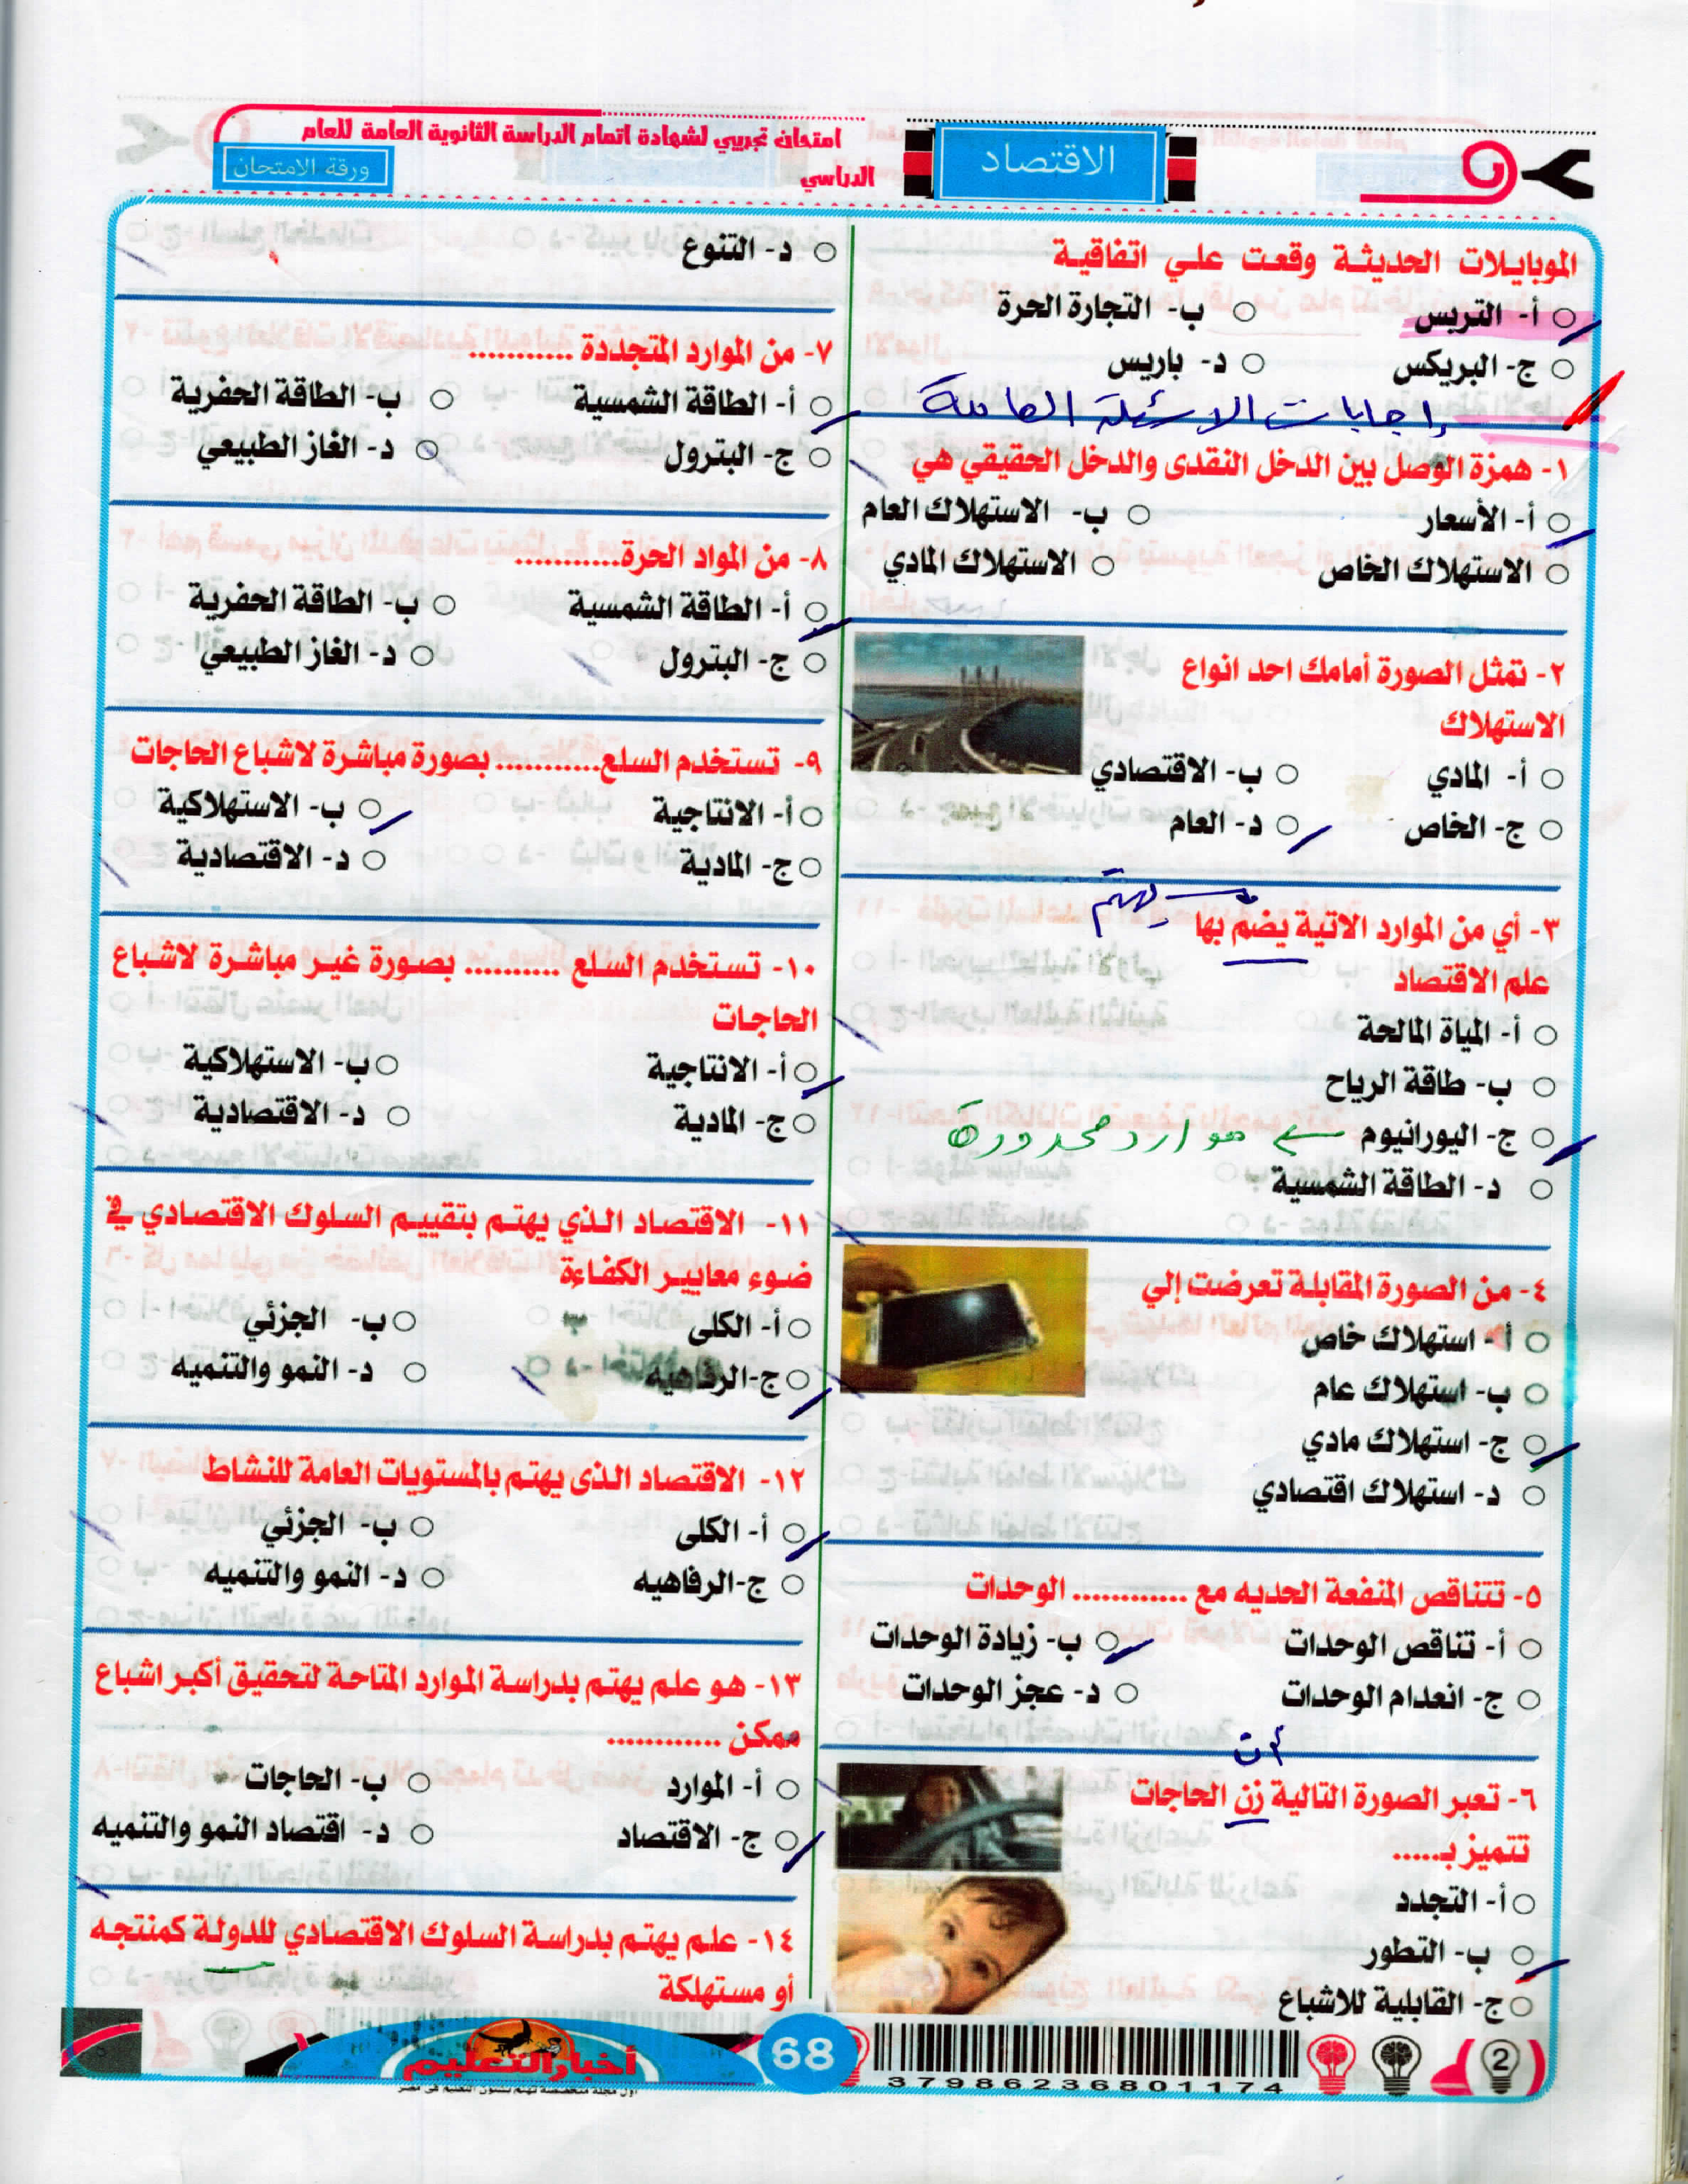 امتحان تجريبي لشهادة اتمام الدراسة الثانوية العامة للعام
الدراسي
ورقة الامتحان
الاقتصاد
الموبايلات الحديثة وقعت علي اتفاقية
أ- التربس
ب- التجارة الحرة
ج- البريكس
د- باريس
إجابات الاسئلة الهامة
١- همزة الوصل بين الدخل النقدى والدخل الحقيقي هي
أ- الأسعار
ب- الاستهلاك العام
الاستهلاك الخاص
الاستهلاك المادي
٢- تمثل الصورة أمامك احد انواع
الاستهلاك
أ- المادي
ب- الاقتصادي
ج- الخاص
د- العام
يهتم
٣- أي من الموارد الاتية يضم بها
علم الاقتصاد
أ- المياة المالحة
ب- طاقة الرياح
ج- اليورانيوم ← موارد محدودة
د- الطاقة الشمسية
٤- من الصورة المقابلة تعرضت إلي
أ- استهلاك خاص
ب- استهلاك عام
ج- استهلاك مادي
د- استهلاك اقتصادي
٥- تتناقص المنفعة الحديه مع ............ الوحدات
أ- تناقص الوحدات
ب- زيادة الوحدات
ج- انعدام الوحدات
د- عجز الوحدات
أن
٦- تعبر الصورة التالية زن الحاجات
تتميز بـ.....
أ- التجدد
ب- التطور
ج- القابلية للاشباع
د- التنوع
٧- من الموارد المتجددة ...........
أ- الطاقة الشمسية
ب- الطاقة الحفرية
ج- البترول
د- الغاز الطبيعي
٨- من المواد الحرة...........
أ- الطاقة الشمسية
ب- الطاقة الحفرية
ج- البترول
د- الغاز الطبيعي
٩- تستخدم السلع........... بصورة مباشرة لاشباع الحاجات
أ- الانتاجية
ب- الاستهلاكية
ج- المادية
د- الاقتصادية
١٠- تستخدم السلع .......... بصورة غير مباشرة لاشباع
الحاجات
أ- الانتاجية
ب- الاستهلاكية
ج- المادية
د- الاقتصادية
١١- الاقتصاد الذي يهتم بتقييم السلوك الاقتصادي في
ضوء معايير الكفاءة
أ- الكلى
ب- الجزئي
ج-الرفاهيه
د- النمو والتنميه
١٢- الاقتصاد الذى يهتم بالمستويات العامة للنشاط
أ- الكلى
ب- الجزئي
ج-الرفاهيه
د- النمو والتنميه
١٣- هو علم يهتم بدراسة الموارد المتاحة لتحقيق أكبر اشباع
ممكن ............
أ- الموارد
ب- الحاجات
ج- الاقتصاد
د- اقتصاد النمو والتنميه
١٤- علم يهتم بدراسة السلوك الاقتصادي للدولة كمنتجه
أو مستهلكة
أخبار التعليم
اول مجلة متخصصة تهتم بشئون التعليم فى مصر
68
37986236801174
2